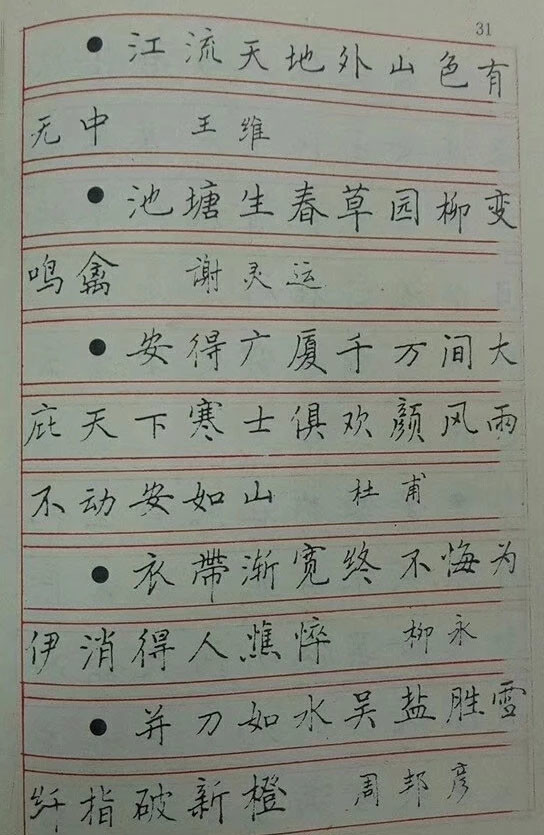 31
●江流天地外山色有
无中 王维
●池塘生春草园柳变
鸣禽 谢灵运
●安得广厦千万间大
庇天下寒士俱欢颜风雨
不动安如山 杜甫
●衣带渐宽终不悔为
伊消得人憔悴 柳永
●并刀如水吴盐胜雪
纤指破新橙 周邦彦